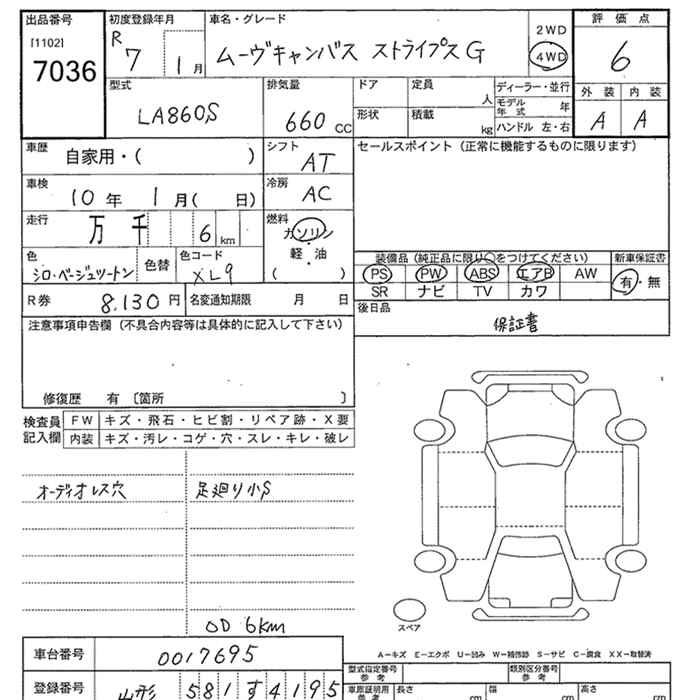 出品番号 初度登録年月 車名・グレード 評価点
[1102] R 7 1月 ムーヴキャンバス ストライプス G 2WD
7036 4WD 6
型式 排気量 ドア 定員 人 ディーラー・並行 外装 内装
LA860S 660 CC 形状 積載 kg モデル年式 年 A A
ハンドル 左・右
車歴 自家用・( ) シフト AT セールスポイント (正常に機能するものに限ります)
車検 10年 1月( 日) 冷房 AC
走行 万 千 6 km 燃料 ガソリン
軽・油
( ・ )
色 シロ・ベージュツートン 色替 色コード XL9
装備品 (純正品に限り○をつけてください) 新車保証書
PS PW ABS エアB AW 有・無
SR ナビ TV カワ
R券 8,130円 名変通知期限 月 日 後日品
保証書
注意事項申告欄 (不具合内容等は具体的に記入して下さい)
修復歴 有 〔箇所 〕
検査員記入欄 FW キズ・飛石・ヒビ割・リペア跡・X要
内装 キズ・汚レ・コゲ・穴・スレ・キレ・破レ
オーディオレス穴 足廻り小S
OD 6km
スペア
A−キズ E−エクボ U−凹み W−補修跡 S−サビ C−腐食 XX−取替済
車台番号 0017695
型式指定番号 参考 類別区分番号 参考
登録番号 山形 581 す 4195
車庫証明用 参考 長さ cm 幅 cm 高さ cm